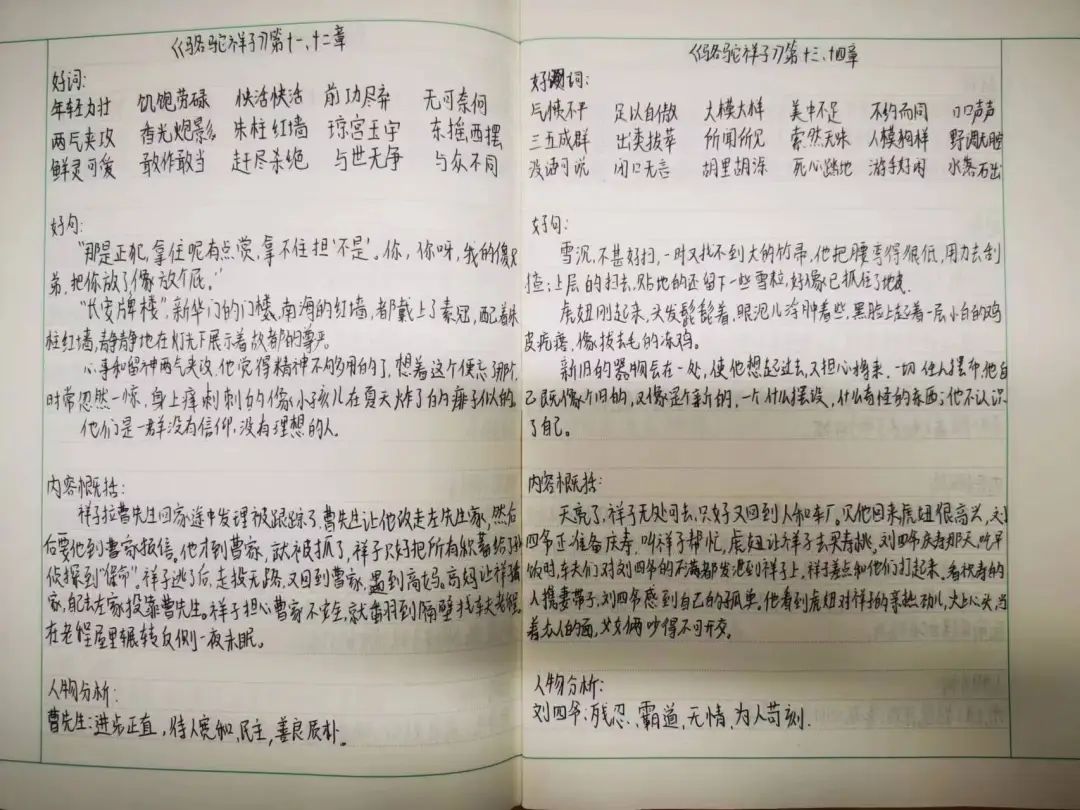 《骆驼祥子》第十一、十二章
好词:
年轻力壮 饥饱劳碌 快活快活 前功尽弃 无可奈何
两气夹攻 香光炮影 朱柱红墙 琼宫玉宇 东摇西摆
鲜灵可爱 敢作敢当 赶尽杀绝 与世无争 与众不同
好句:
“那是正犯,拿住呢有点赏,拿不住担‘不是’。你,你呀,我的傻兄
弟,把你放了像放个屁.”
“长安牌楼”,新华门的门楼,南海的红墙,都戴上了素冠,配着朱
柱红墙,静静地在灯光下展示着故都的尊严.
心寻和留神两气夹攻,他觉得精神不够用的了,想着这个便忘了那个,
时常忽然一惊,身上痒刺刺的像小孩儿在夏天炸了的痱子似的.
他们是一群没有信仰,没有理想的人.
内容概括:
祥子拉曹先生回家途中发理被跟踪了.曹先生让他改走左先生家,然后
后要他到曹家报信。他才到曹家,就被抓了,祥子只好把所有积蓄给了孙
侦探到“保命”.祥子逃了后,走投无路,又回到曹家,遇到高妈.高妈让祥
家,自己去左家投靠曹先生。祥子担心曹家不安全,就翻到隔壁找车夫老程.
在老程屋里辗转反侧一夜未眠。
人物分析:
曹先生:进步正直,待人宽和,民主,善良质朴。
《骆驼祥子》第十三、十四章
好词:
气候不平 足以自傲 大模大样 美中不足 不约而同 口口声声
三五成群 出类拔萃 所闻所见 索然无味 人模狗样 野调无腔
没话可说 闭口无言 胡里胡涂 死心踏地 游手好闲 水落石出
好句:
雪沉,不甚好扫,一时又找不到大的竹帚,他把腰弯得很低,用力去刮
揸;上层的扫去,贴地的还留下一些雪粒,好像已抓住了地皮.
虎妞刚起来,头发髭髭着,眼泡儿浮肿着些,黑脸上起着一层小白的鸡
皮疙瘩,像拔去毛的冻鸡。
新旧的器物合在一处,使他想起过去,又担心将来.一切任人摆布,他自
己既像个旧的,又像是个新的,一个什么摆设,什么奇怪的东西;他不认识
了自己。
内容概括:
天亮了,祥子无处可去,只好又回到人和车厂。见他回来虎妞很高兴,刘
四爷正准备庆寿,叫祥子帮忙,虎妞让祥子去买寿桃。刘四爷庆寿那天,吃早
饭时,车夫们对刘四爷的不满都发泄到祥子上,祥子差点和他们打起来.看祝寿的
人携妻带子,刘四爷感到自己的孤单。他看到虎妞对祥子的亲热劲儿,火上心头,当
着众人的面,父女俩吵得不可开交。
人物分析:
刘四爷:残忍、霸道、无情、为人苛刻.